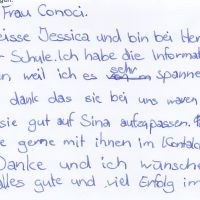 Frau Conoci.
eisse Jessica und bin bei Her
r Schule. Ich habe die Informat
n weil ich es sehr spanne
dank das sie bei uns waren
sie gut auf Sina aufzupassen.
e gerne mit ihnen im Kontak
Danke und ich wünsche
lles gute und viel Erfolg im